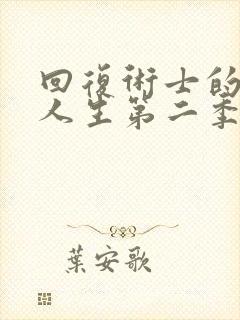 回復術士的
人生第二季
葉安歌